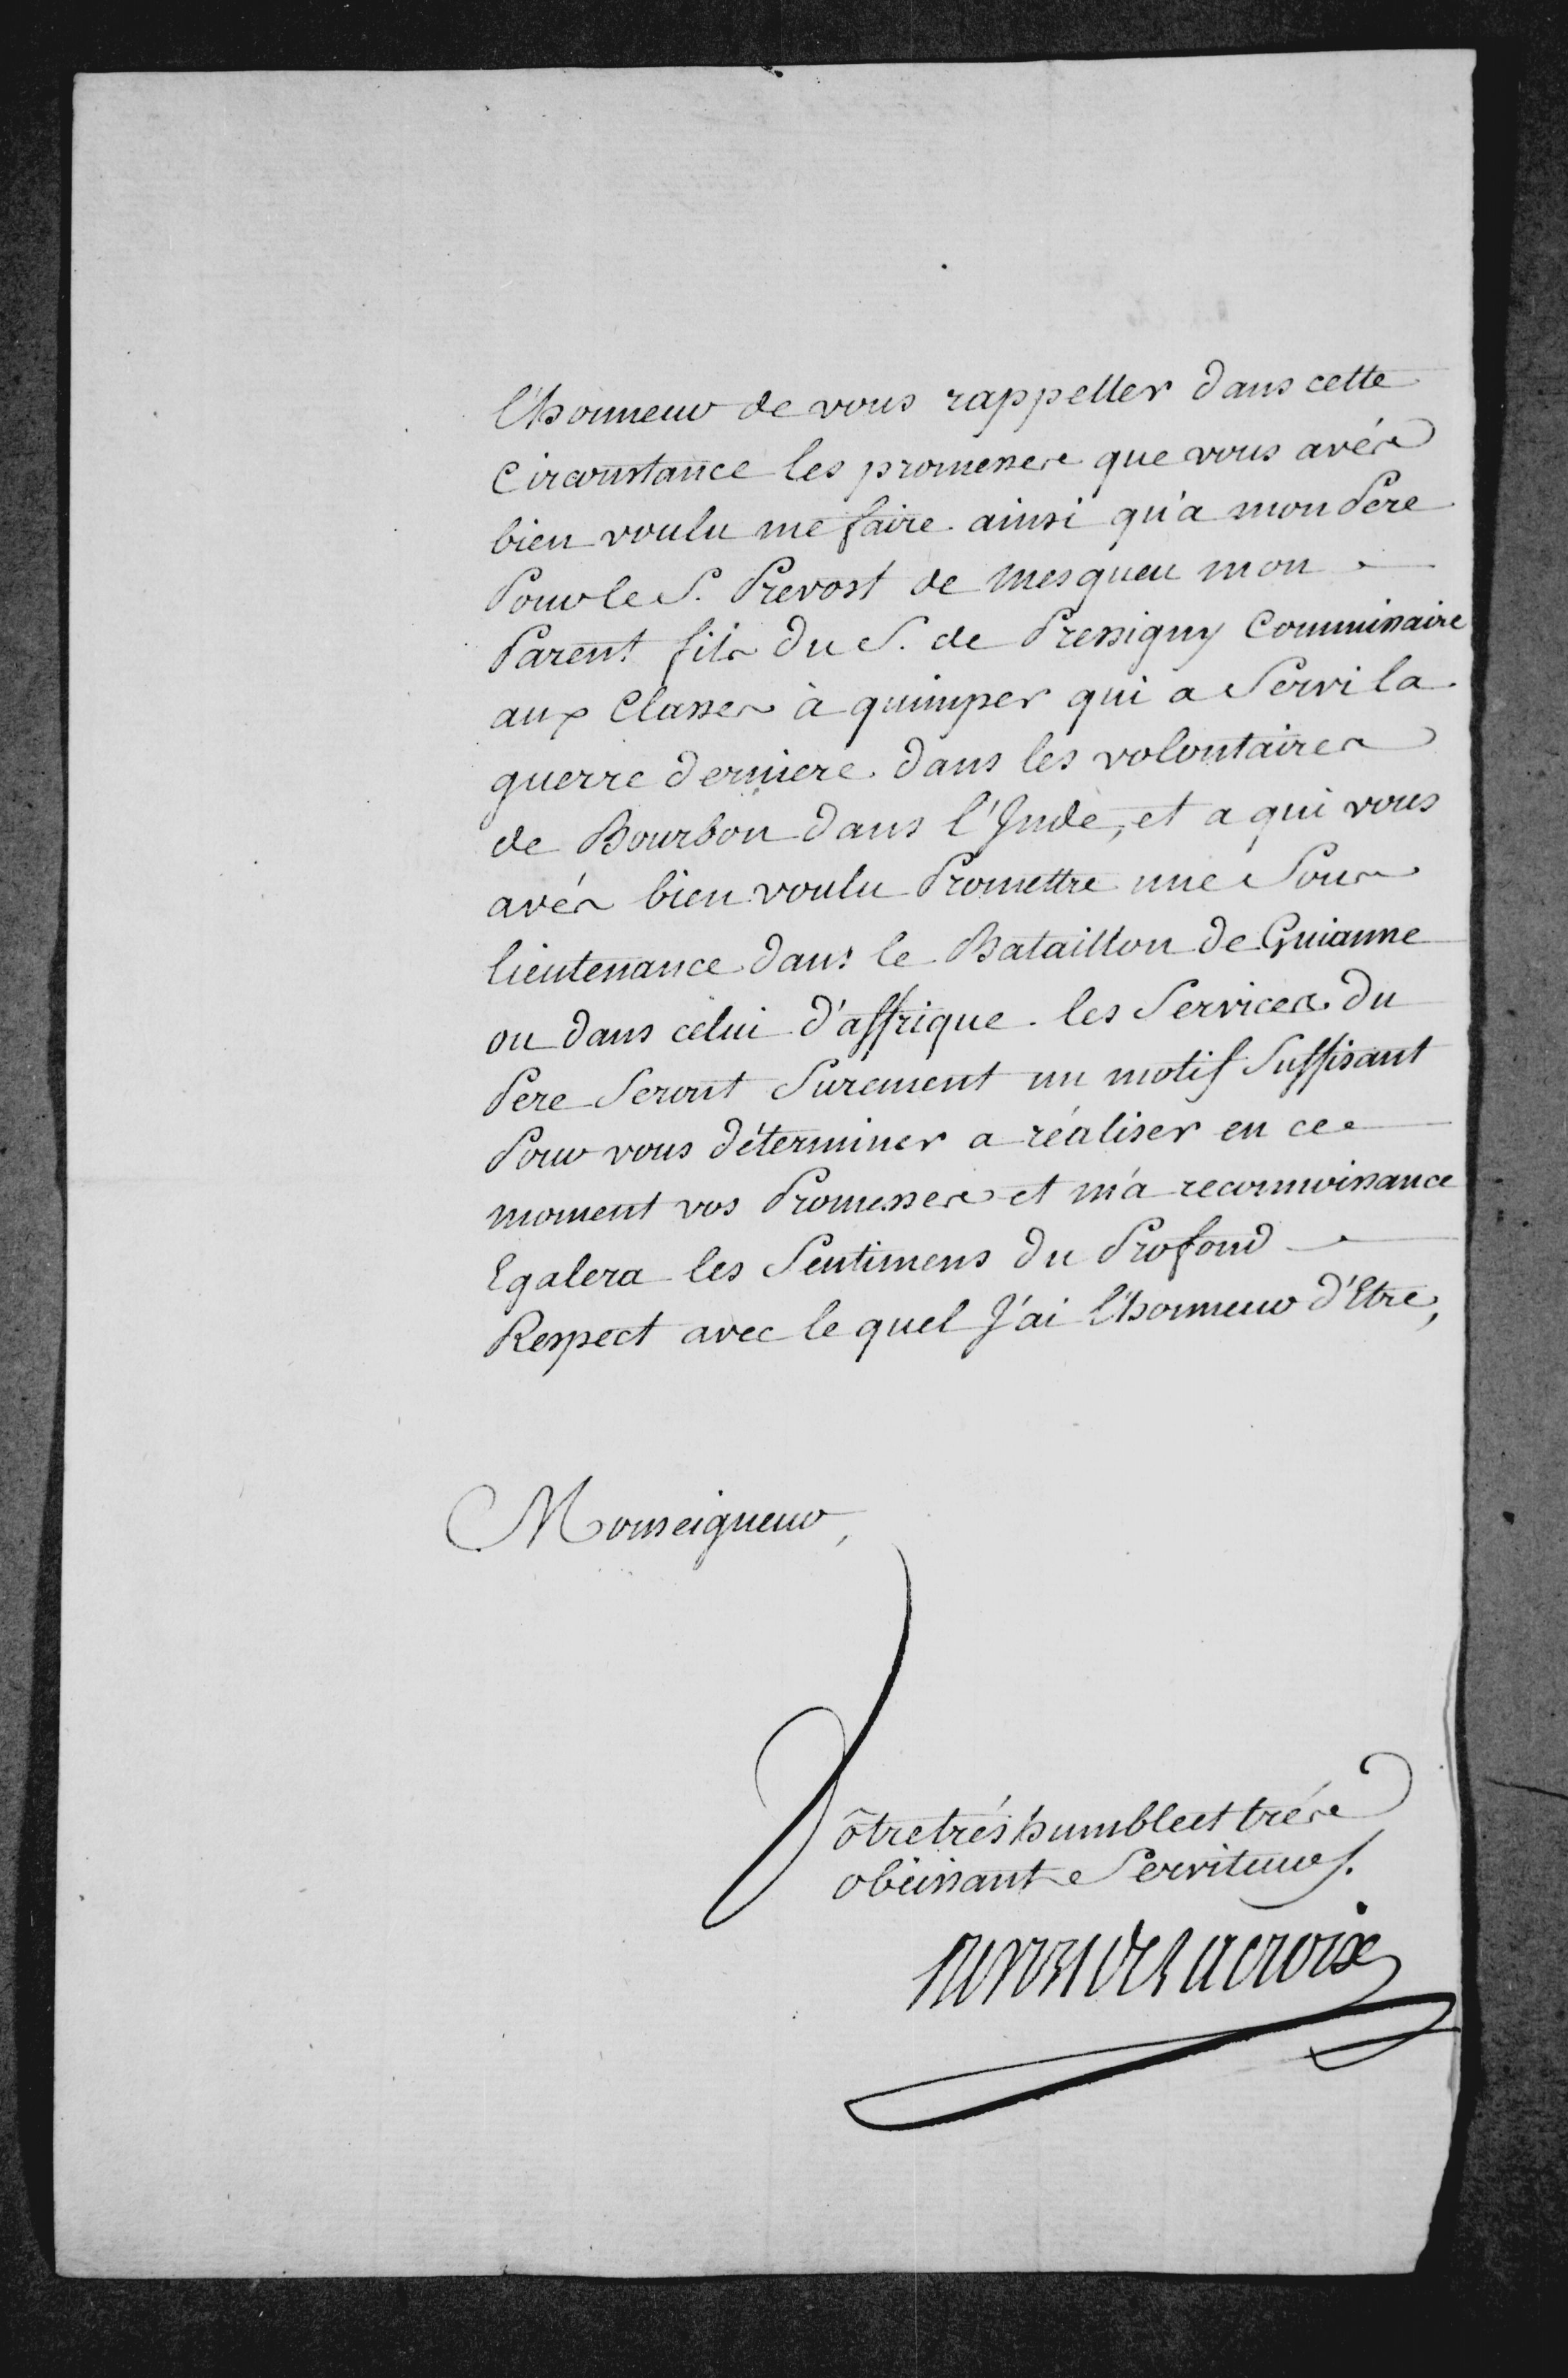 l'honneur de vous rappeller dans cette
Circonstance les promesses que vous avés
bien voulu me faire ainsi qu'a mon Pere
Pour le S. Prevost de mesqueu mon
Parent fils du S. de Pressigny Commissaire
aux Classes à quimper qui a Servi la
guerre derniere dans les volontaires
de Bourbon dans l'Inde, et a qui vous
avés bien voulu Promettre une Sous
lieutenance dans le Bataillon de Guianne
ou dans celui d'affrique. les Services du
Pere Seront Surement un motif Suffisant
Pour vous déterminer a réaliser en ce
moment vos Promesses et ma reconnoissance
Egalera les Sentimens du Profond
Respect avec le quel J'ai l'honneur d'Etre,
Monseigneur,
Vôtre trés humble et trés
obéissant Serviteur.
prevost de la croix